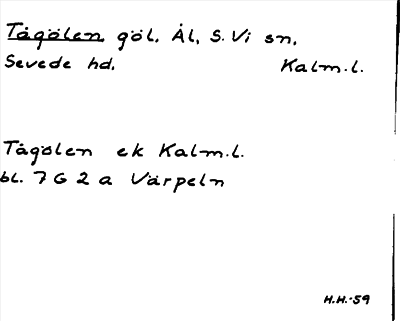 Tågölen göl. Ål, S. Vi sn,
Sevede hd. Kalm.l.
Tågölen ek Kalm.l.
bl. 7 G 2 a Värpeln
H.H.-59